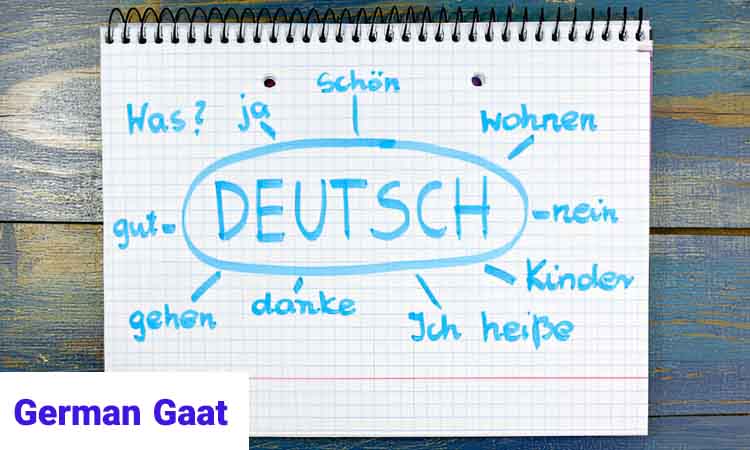 schön
Was? ja
wohnen
gut
DEUTSCH
nein
Kinder
gehen
danke
Ich heiße
German Gaat